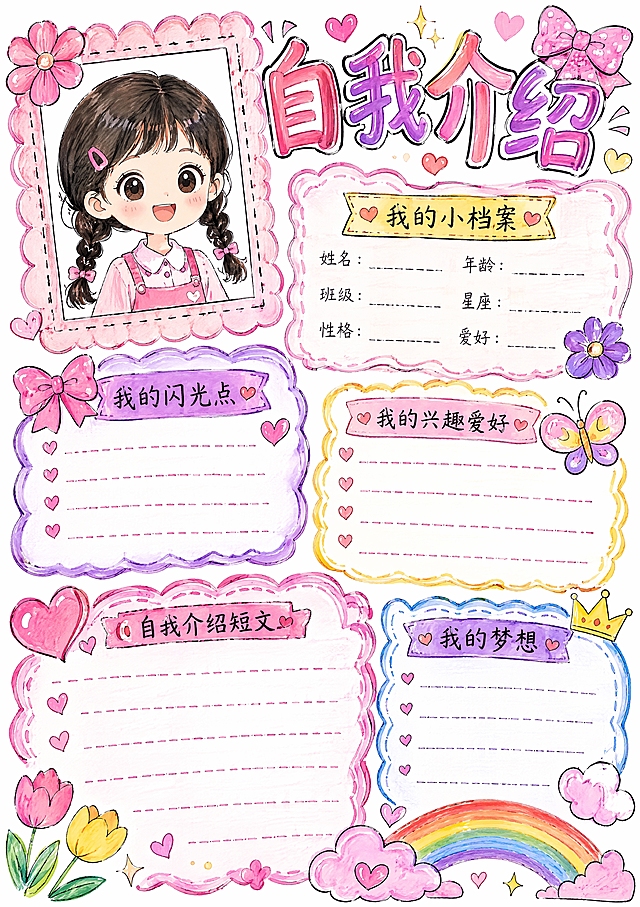 自我介绍
我的小档案
姓名： 年龄：
班级： 星座：
性格： 爱好：
我的闪光点
我的兴趣爱好
自我介绍短文
我的梦想